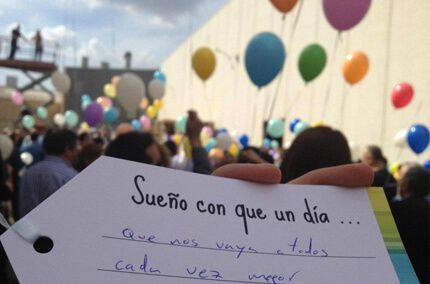 Sueño con que un día ...
que nos vaya a todos
cada vez mejor